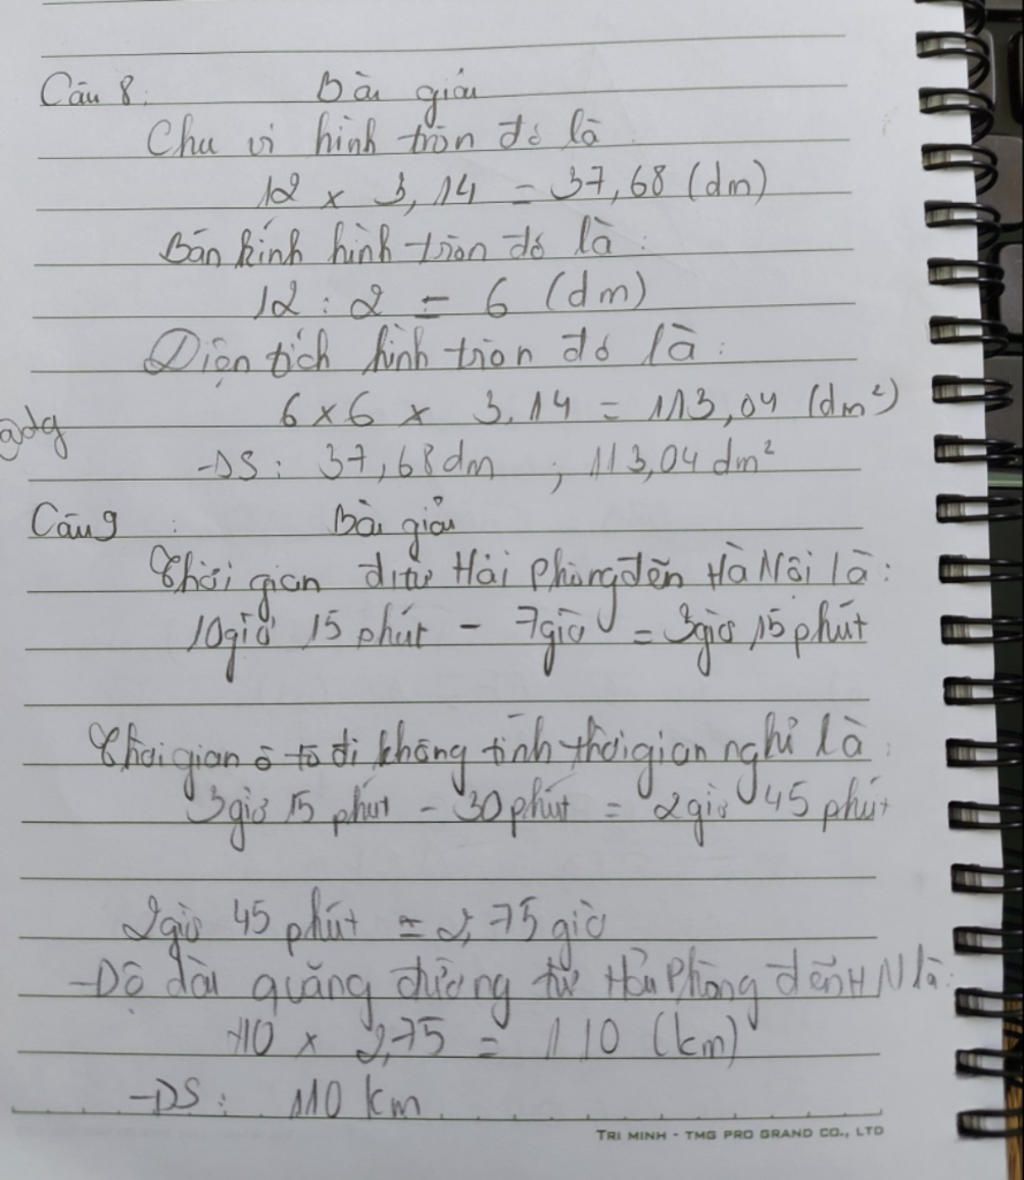 Câu 8: Bài giải
Chu vi hình tròn đó là
12 x 3,14 = 37,68 (dm)
Bán kính hình tròn đó là:
12 : 2 = 6 (dm)
Diện tích hình tròn đó là:
6 x 6 x 3.14 = 113,04 (dm²)
ĐS: 37,68dm ; 113,04 dm²
Câu 9: Bài giải
Thời gian đi từ Hải Phòng đến Hà Nội là:
10giờ 15 phút - 7giờ = 3giờ 15 phút
Thời gian ô tô đi không tính thời gian nghỉ là:
3giờ 15 phút - 30 phút = 2giờ 45 phút
2giờ 45 phút = 2,75 giờ
Độ dài quãng đường từ Hải Phòng đến HN là:
40 x 2,75 = 110 (km)
ĐS: 110 km
TRI MINH - TMG PRO GRAND CO., LTD